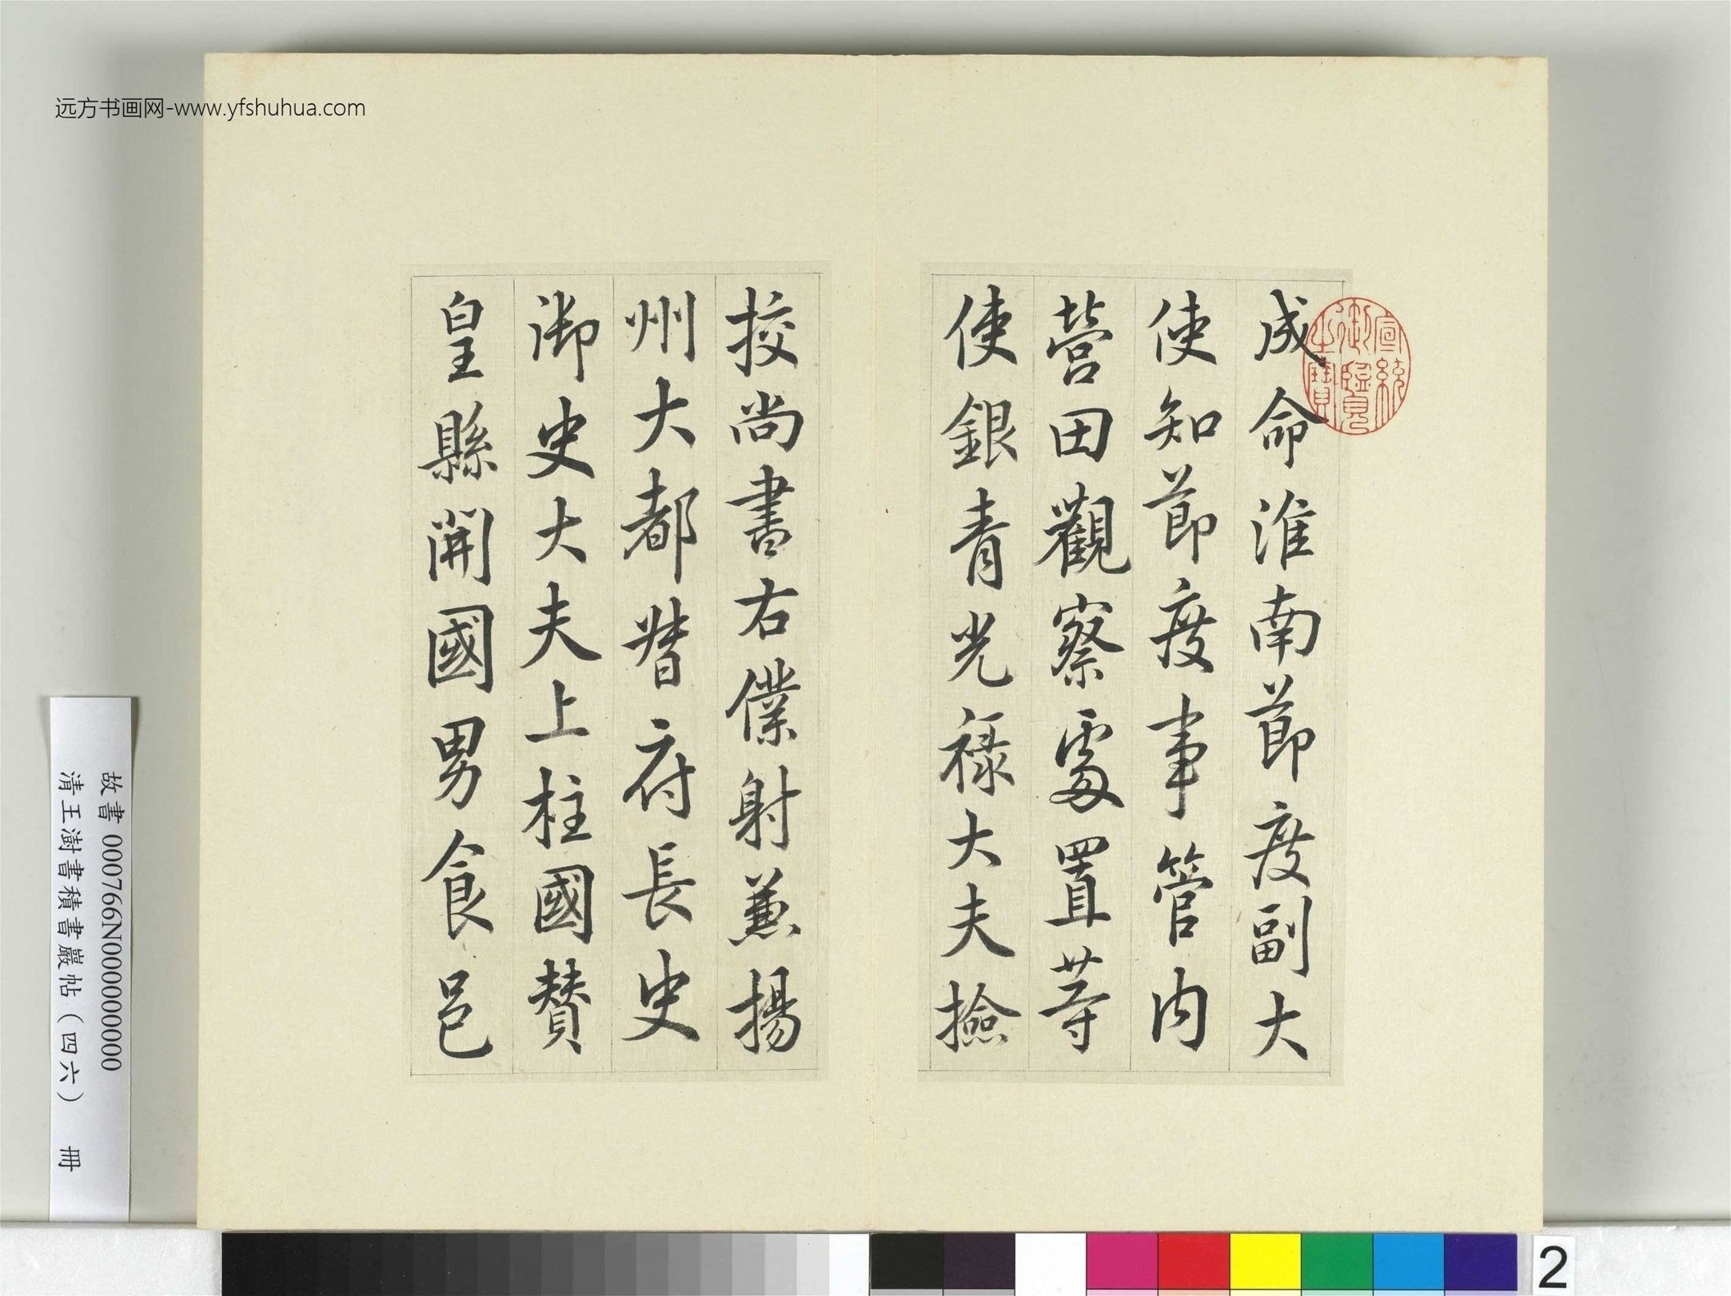 远方书画网-www.yfshuhua.com
成命淮南節度副大
使知節度事管内
營田觀察處置等
使銀青光祿大夫撿
挍尚書右僕射兼揚
州大都督府長史
御史大夫上柱國賛
皇縣開國男食邑
宣統御覽之寶
故書 000766N000000000
清王澍書積書巖帖(四六) 冊
2